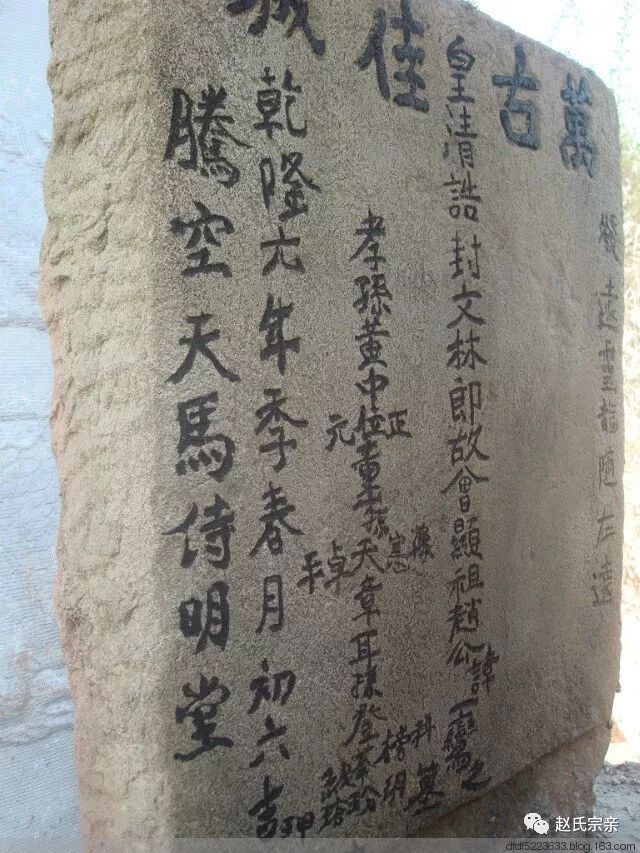 萬古佳城
雲龍隨左
皇清誥封文林郎故曾顯祖趙公諱一鸞之墓
孝孫黃中位
正
元
憲
卓
天章耳孫登
科
楷
玥
乾隆元年季春月初六吉
騰空天馬侍明堂
赵氏宗亲
dfdf5223633.blog.163.com